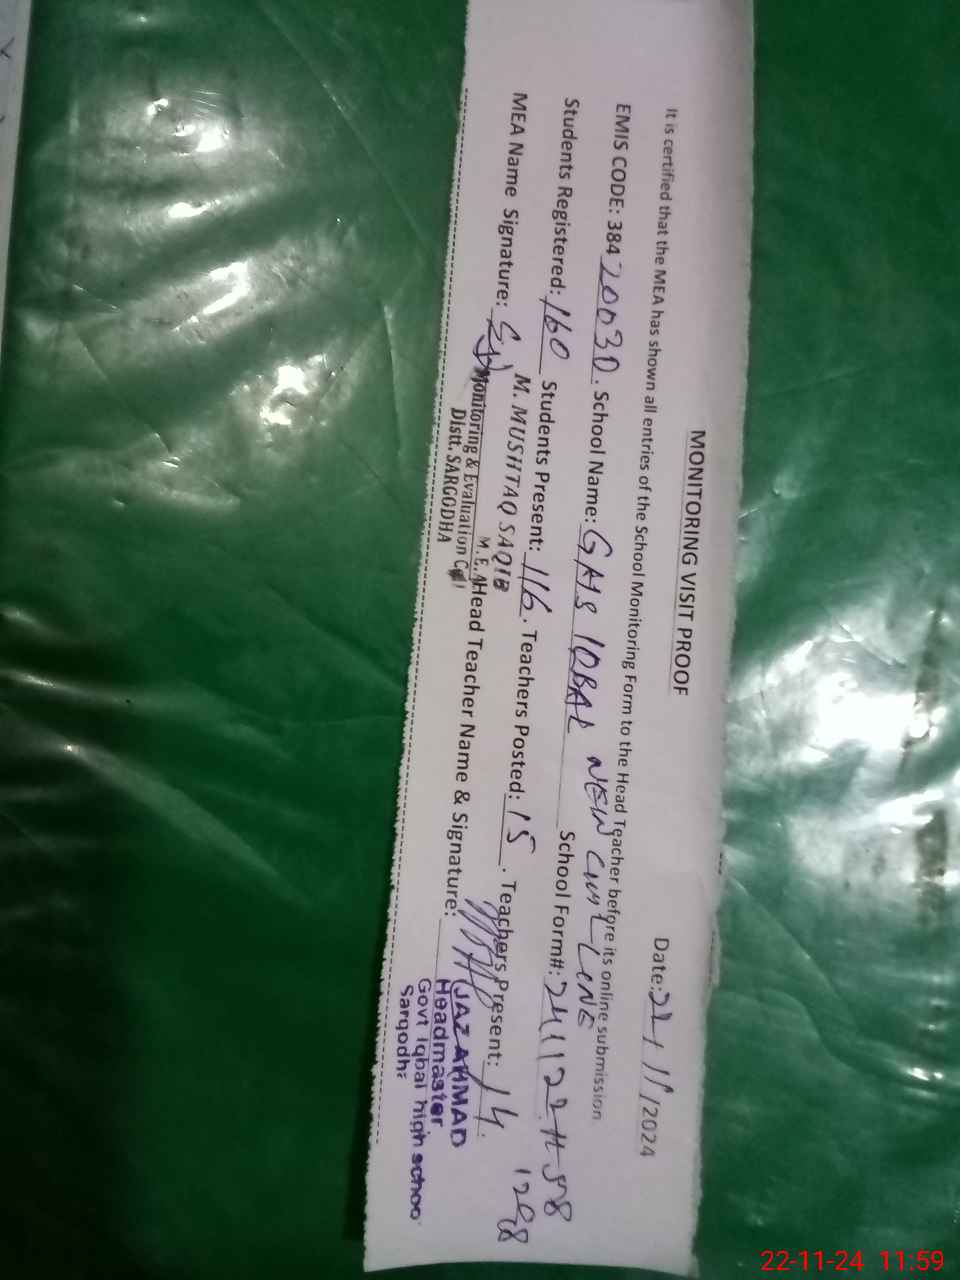 MONITORING VISIT PROOF
Date: 22/11/2024
It is certified that the MEA has shown all entries of the School Monitoring Form to the Head Teacher before its online submission
EMIS CODE: 38420030. School Name: GHS IQBAL NEW CIVIL LINE
Students Registered: 160 Students Present: 116. Teachers Posted: 15. Teachers Present: 14.
School Form#: 241122
1298
MEA Name Signature:
M. MUSHTAQ SAQIB
M.E.A
Monitoring & Evaluation Cell
Distt. SARGODHA
Head Teacher Name & Signature:
IJAZ AHMAD
Headmaster
Govt Iqbal high schoo
Sargodh
22-11-24 11:59